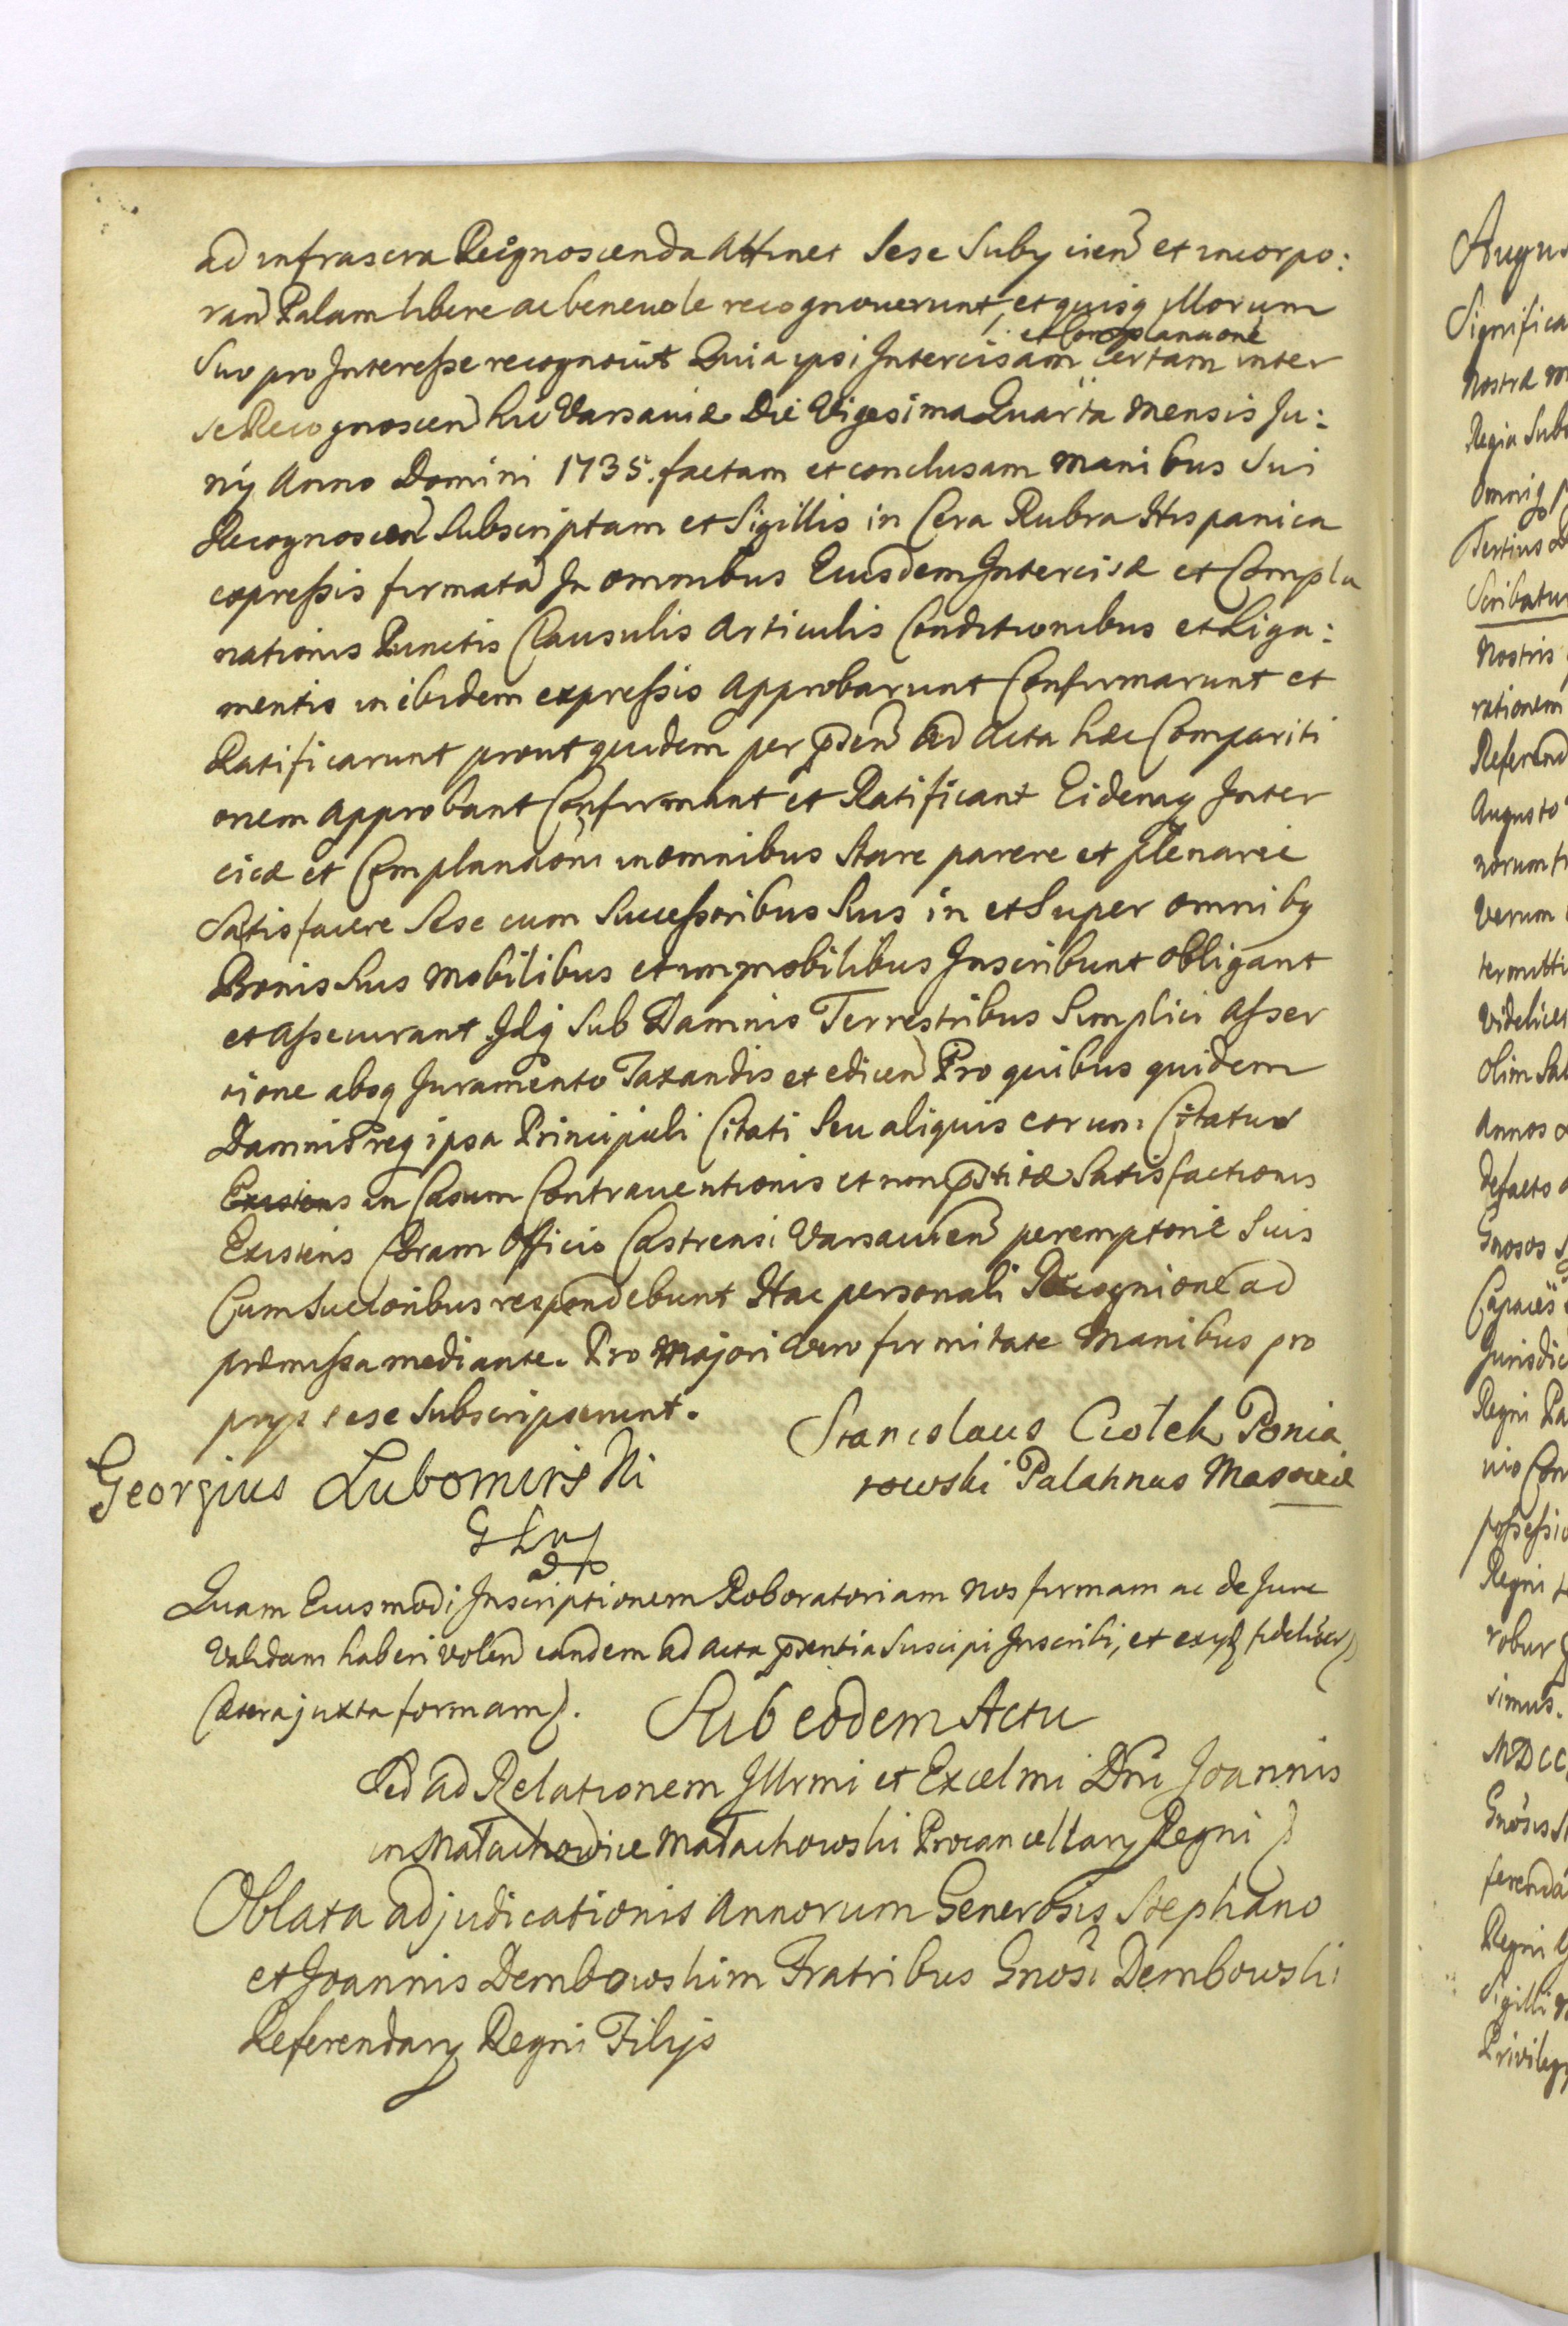 ad infrascra Recognoscenda Attinet Sese Subijcien et incorpo:
ran Palam libere ac beneuole recognouerunt, et quisq illorum
et Complanaone
Suo pro Interesse recognouit Quia ipsi Intercisam certam inter
se Recognoscen hic Varsauiæ Die Vigesima Quarta Mensis Ju:
nij Anno Domini 1735. factam et conclusam Manibus Sui
Recognoscen Subscriptam et Sigillis in Cera Rubra Hispanica
expressis firmata In omnibus Eiusdem Intercisæ et Compla
nationis Punctis Clausulis Articulis Conditionibus et Liga:
mentis inibidem expressis Approbarunt Confirmarunt et
Ratificarunt prout quidem per pñsen ad Acta hæc Compariti
onem Approbant Confirmant et Ratificant Eidemq Inter
cisæ et Complanaoni in omnibus Stare parere et Plenarie
Satisfacere Sese cum Successoribus Suis in et Super omnibq
Bonis Suis Mobilibus et immobilibus Inscribunt Obligant
et Assecurant Idq Sub Damnis Terrestribus Simplici Asser
tione absq Juramento Taxandis et edicen Pro quibus quidem
Damnis req ipsa Principali Citati Seu aliquis eorum Citatus
Existens in Casum Contrauentionis et non pstitæ Satisfactionis
Existens Coram Officio Castrensi Varsauien peremptorie Suis
Cum Suctoribus respondebunt Hac personali Recognione ad
præmissa mediante. Pro Majori Vero firmitate Manibus pro
prijs sese Subscripserunt.
Stanislaus Ciołek Ponia
Georgius Lubomirski
towski Palatinus Masoviæ
Quam Eiusmodi Inscriptionem Roboratoriam Nos firmam ac de Jure
Validam haberi Volen eandem ad Acta psentia Suscipi Inscribi, et fideliter
Cætera juxta formam.
Sub eodem Actu
Sed ad Relationem Illrmi et Excelmi Dni Joannis
in Małachowice Małachowski Procancellarij Regni
Oblata adjudicationis Annorum Generosis Stephano
et Joannis Dembowskim Fratribus Gnosi Dembowski
Referendarij Regni Filijs
Augus
Significa
Nostræ
Regia Sub
Omniq
Tertius
Scribatur
Nostris
rationem
Referend
Augusto
norum
Verum
termitti
Videlicet
Olim
Annos
Defacto
Gnosos
Capaces
Jurisdic
Regni Pa
possessio
Regni
robur
simus.
MDCC
Gnosis
ferenda
Regni
Sigilli
Privilegij